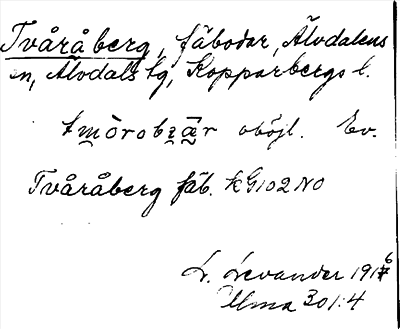 Tvåråberg, fäbodar, Älvdalens
sn, Älvdals tg, Kopparbergs l.
oböjl. Ev.
Tvåråberg fäb. KG102NO
L. Levander 1916
Ulma 301:4